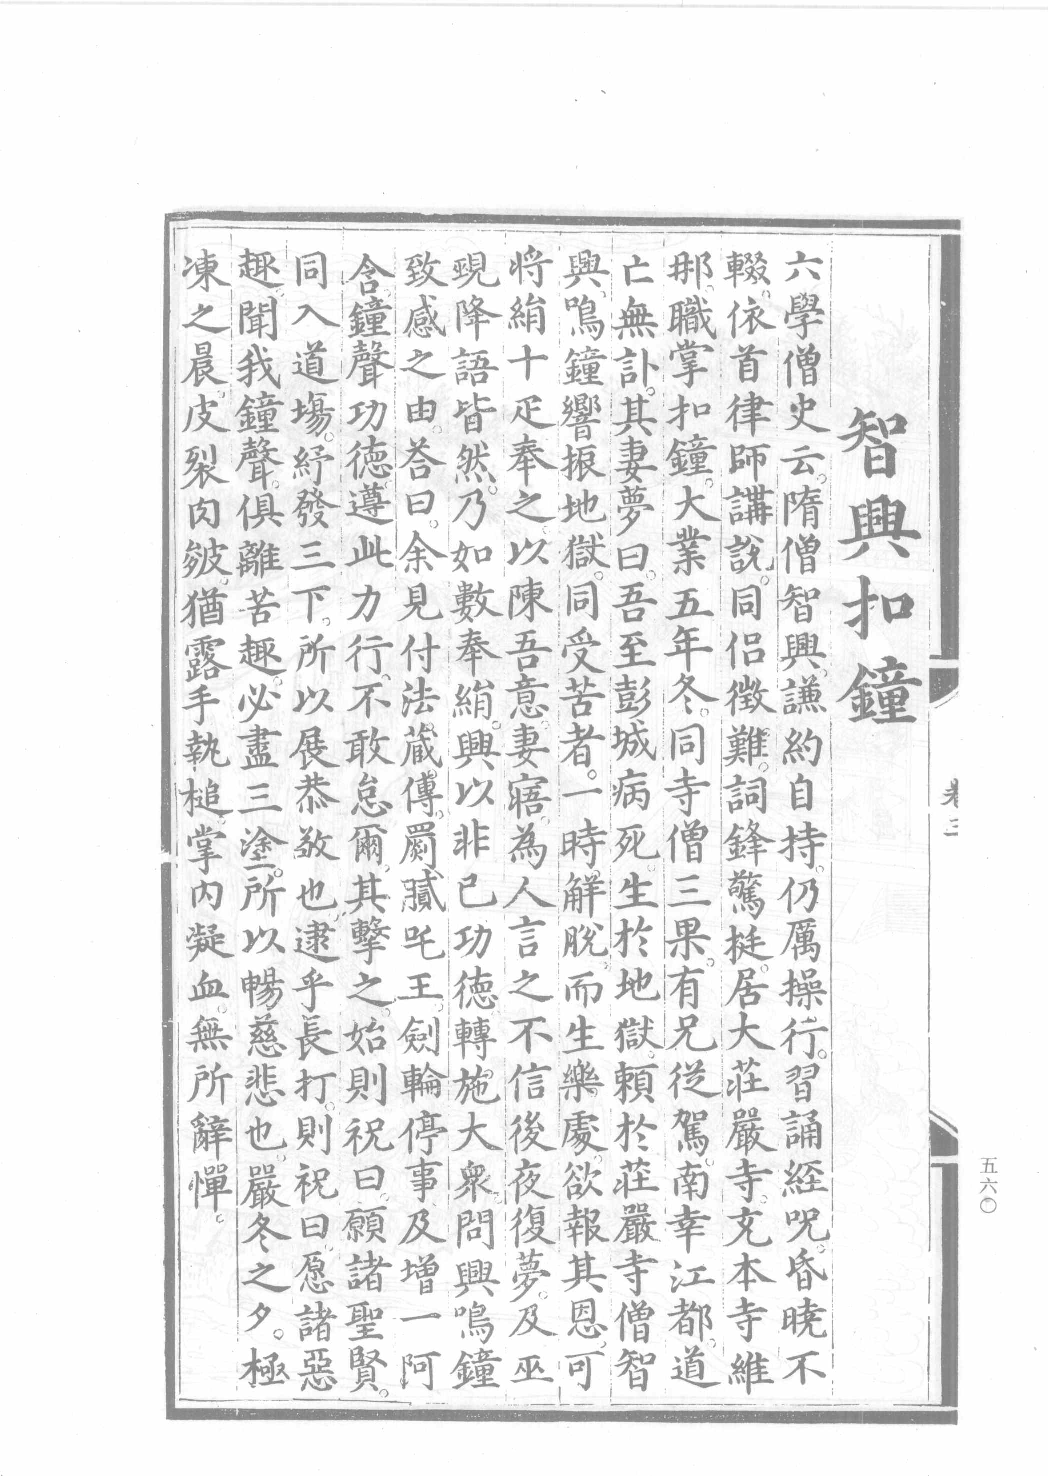 智興扣鐘
六學僧史云。隋僧智興。謙約自持。仍厲操行。習誦經呪。昏曉不
輟。依首律師講說。同侶徵難。詞鋒驚挺。居大莊嚴寺。充本寺維
那。職掌扣鐘。大業五年冬。同寺僧三果。有兄從駕。南幸江都。道
亡無訃。其妻夢曰。吾至彭城病死。生於地獄。賴於莊嚴寺僧智
興。鳴鐘響振地獄。同受苦者。一時解脫。而生樂處。欲報其恩。可
將絹十疋奉之。以陳吾意。妻寤。為人言之不信後夜復夢。及巫
覡降語皆然。乃如數奉絹。興以非己功德。轉施大衆。問興鳴鐘
致感之由。答曰。余見付法藏傳。罽膩吒王。劍輪停事及增一阿
含。鐘聲功德。遵此力行。不敢怠爾。其擊之。始則祝曰。願諸聖賢。
同入道場。紓發三下。所以展恭敬也。逮乎長打。則祝曰。愿諸惡
趣。聞我鐘聲。俱離苦趣。必盡三塗。所以暢慈悲也。嚴冬之夕。極
凍之晨。皮裂肉皴。猶露手執槌。掌內凝血。無所辭憚。
卷三
五六〇